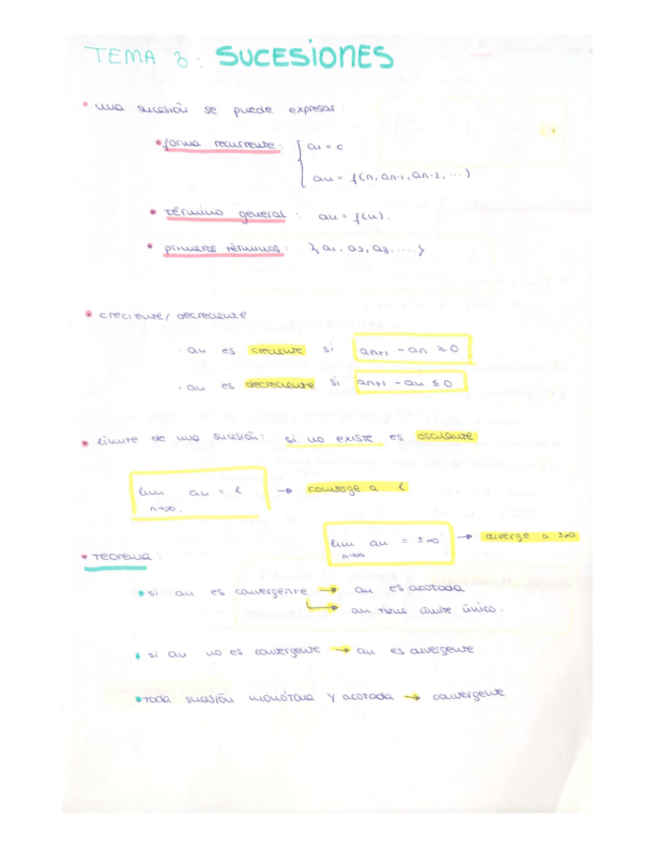 TEMA 3: SUCESIONES
• una sucesión se puede expresar:
• forma recurrente: { a1 = c
an = f(n, an-1, an-2, ...)
• término general: an = f(n).
• primeros términos: {a1, a2, a3, ...}
• creciente/decreciente
· an es creciente si an+1 - an ≥ 0
· an es decreciente si an+1 - an ≤ 0
• límite de una sucesión: si no existe es oscilante
lim an = l → converge a l
n→∞.
lim an = ±∞ → diverge a ±∞
n→∞
• TEOREMA:
• si an es convergente → an es acotada
→ an tiene límite único.
• si an no es convergente → an es divergente
• toda sucesión monótona y acotada → convergente